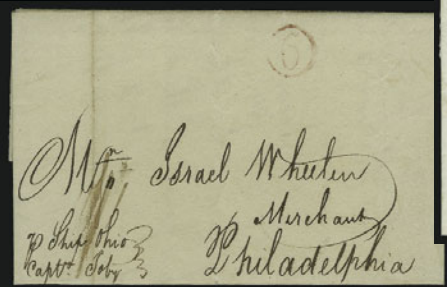 6
Mr. Israel Wheelen
Merchant
Philadelphia
p Ship Ohio
Captn. Toby